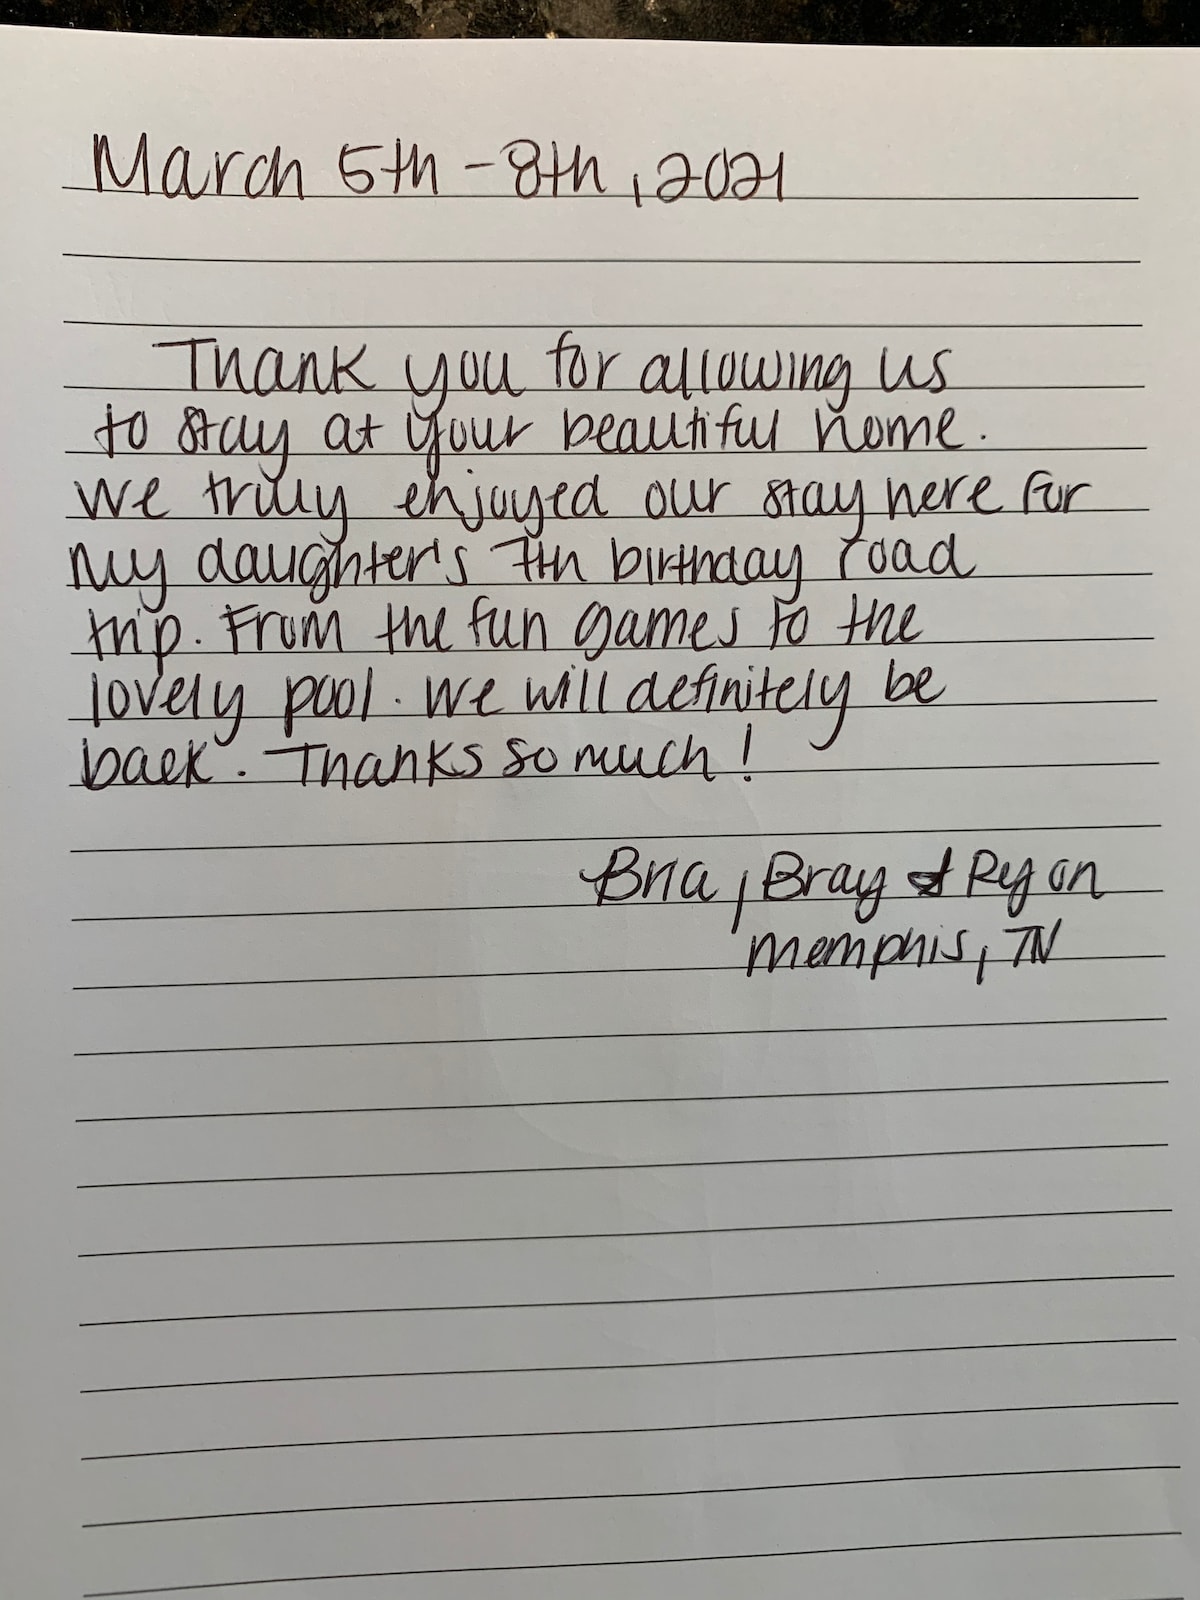 March 5th - 8th, 2021
Thank you for allowing us
to stay at your beautiful home.
We truly enjoyed our stay here for
my daughter's 7th birthday road
trip. From the fun games to the
lovely pool. We will definitely be
back. Thanks so much!
Bria, Bray & Ryan
Memphis, TN